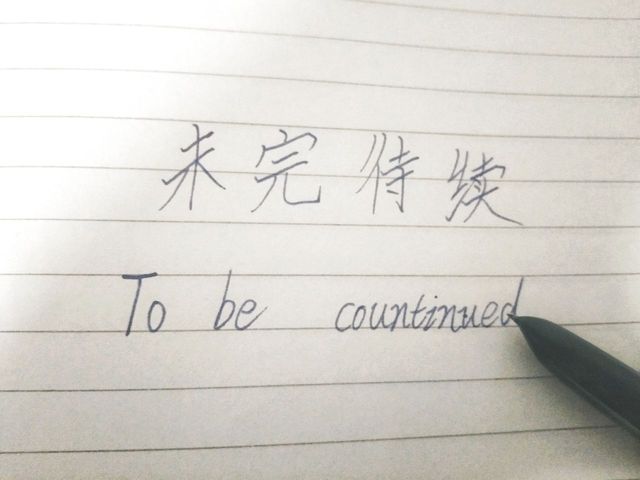 未完待续
To be countinued